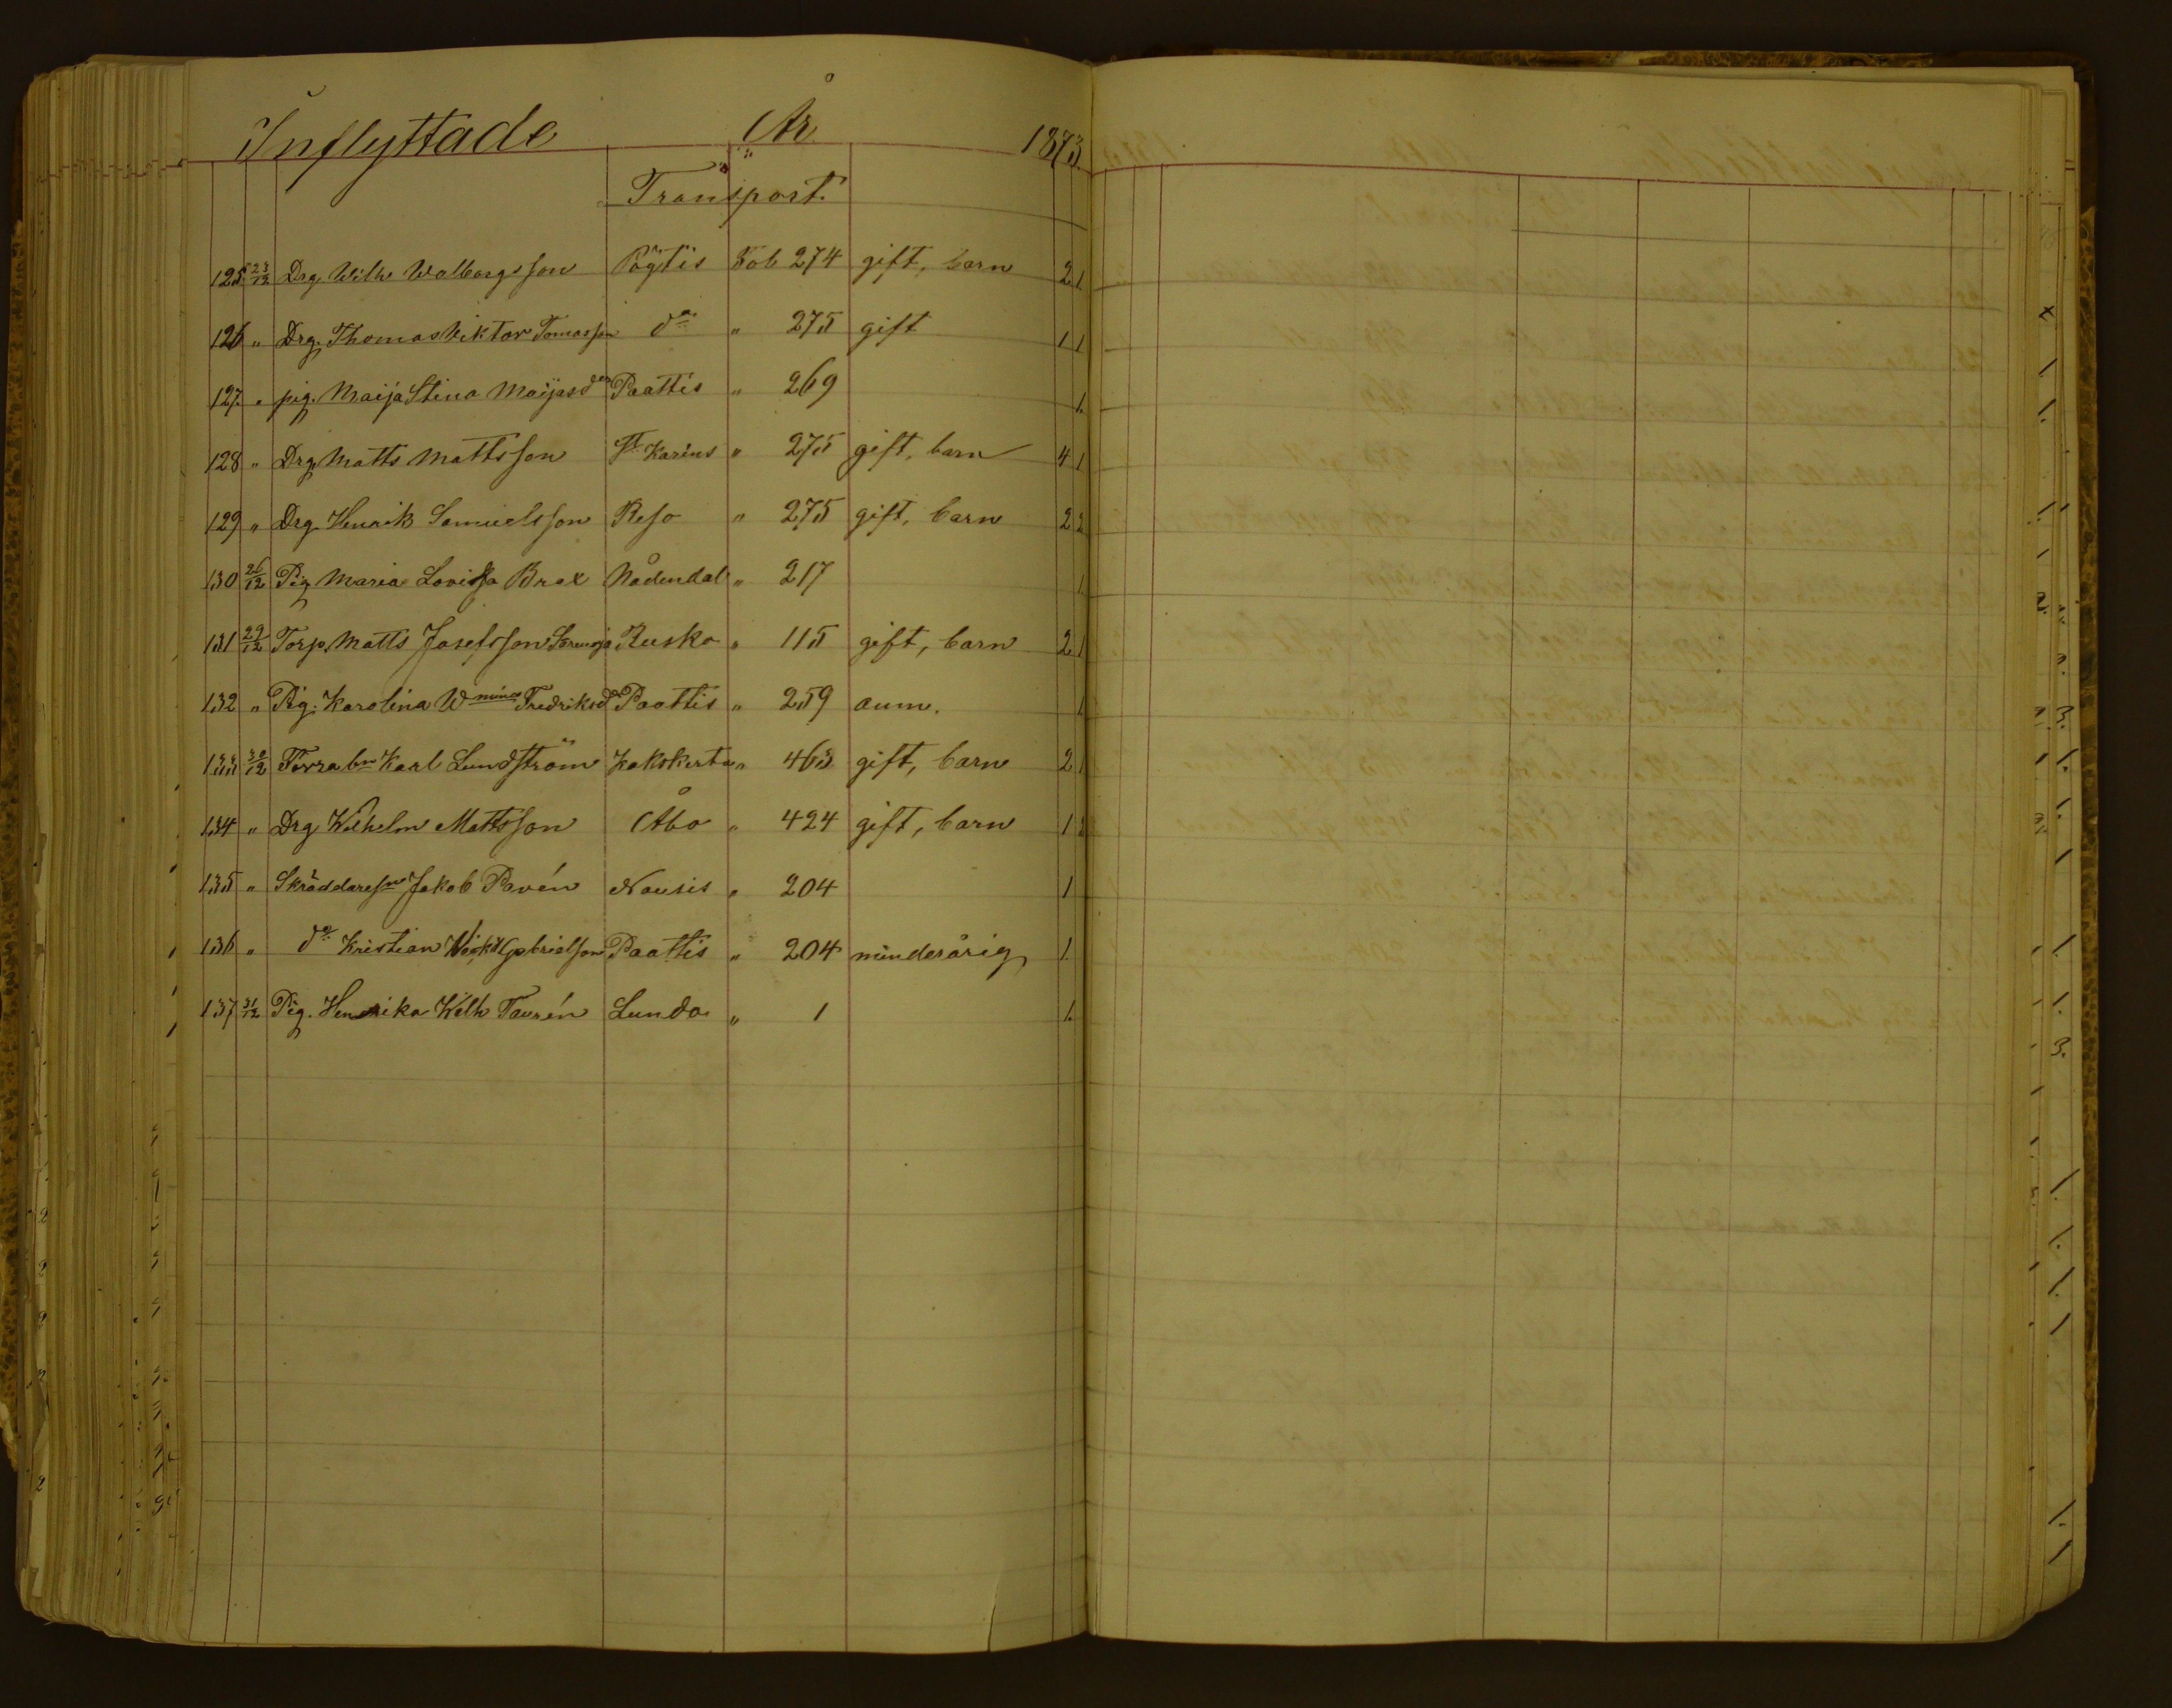 Inflyttade År 1873.
Transport.
125. 23/12 Drg. Wilh Walborgsson Pögtis Fol. 274 gift, barn 2 1
126 " Drg. Thomas Viktor Tomasson do " 275 gift 1 1
127. " pig. Maija Stina Maijasdr Paattis " 269 1.
128 " Drg Matts Mattsson St Karins " 275 gift, barn 4 1
129 " Drg. Henrik Samuelsson Reso " 275 gift, barn 2 2
130 26/12 Pig Maria Lovisa Brax Nådendal " 217 1
131 29/12 Torp. Matts Josefsson Rusko " 115 gift, barn 2 1
132 " Pig. Karolina Wmina Fredriksdr Paattis " 259 anm. 1
133 30/12 Karl Lundström Kakskerta " 463 gift, barn 2 1
134 " Drg Wilhelm Mattsson Åbo " 424 gift, barn 1 2
135 " Skräddaresn Jakob Pavén Nousis " 204 1
136 " do Kristian Gabrielson Paattis " 204 minderårig 1.
137 31/12 Pig. Henrika Wilh Taurén Lundo " 1 1.